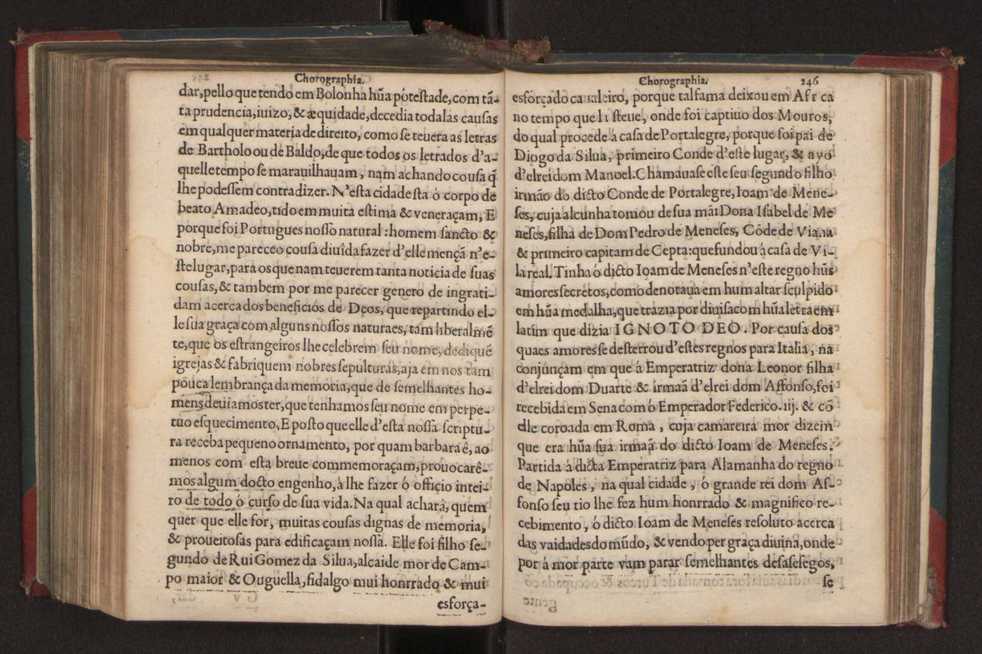 Chorographia.
dar, pello que tendo em Bolonha hũa potestade, com tã-
ta prudencia, iuizo, & æquidade, decedia todalas causas
em qualquer materia de direito, como se teuera as letras
de Bartholo ou de Baldo, de que todos os letrados d'a-
quelle tempo se marauilhauam, nam achando cousa q̃
lhe podessem contradizer. N'esta cidade sta ó corpo de
beato Amadeo, tido em muita estima & veneraçam, E
porque foi Portugues nosso natural: homem sancto &
nobre, me pareceo cousa diuida fazer d'elle mençã n'e-
ste lugar, para os que nam teuerem tanta noticia de suas
cousas, & tambem por me parecer genero de ingrati-
dam acerca dos beneficios de Deos, que repartindo el-
le sua graça com alguns nossos naturaes, tam liberalmẽ
te, que os estrangeiros lhe celebrem seu nome, dediquẽ
igrejas & fabriquem nobres sepulturas, aja em nos tam
pouca lembrança da memoria, que de semelhantes ho-
mens deuiamos ter, que tenhamos seu nome em perpe-
tuo esquecimento, E posto que elle d'esta nossa scriptu-
ra receba pequeno ornamento, por quam barbara é, ao
menos com esta breue commemoraçam, prouocarê-
mos algum docto engenho, á lhe fazer ó officio intei-
ro de todo ó curso de sua vida. Na qual achará, quem
quer que elle for, muitas cousas dignas de memoria,
& proueitosas para edificaçam nossa. Elle foi filho se-
gundo de Rui Gomez da Silua, alcaide mor de Cam-
po maior & Ouguella, fidalgo mui honrrado & mui
esforça-
Chorographia. 246
esforçado caualeiro, porque tal fama deixou em Africa
no tempo que lá steue, onde foi captiuo dos Mouros,
do qual procede á casa de Portalegre, porque foi pai de
Diogo da Silua, primeiro Conde d'este lugar, & ayo
d'elrei dom Manoel. Chamauase este seu segundo filho
irmão do dicto Conde de Portalegre, Ioam de Mene-
ses, cuja alcunha tomou de sua mãi Dona Isabel de Me
neses, filha de Dom Pedro de Meneses, Cõde de Viana
& primeiro capitam de Cepta: que fundou á casa de Vi-
la real. Tinha ó dicto Ioam de Meneses n'este regno hũs
amores secretos, como denotaua em hum altar sculpido
em hũa medalha, que trazia por diuisa com hũa letra em
latim que dizia IGNOTO DEO. Por causa dos
quaes amores se desterrou d'estes regnos para Italia, na
conjunçam em que á Emperatriz dona Leonor filha
d'elrei dom Duarte & irmaã d'elrei dom Affonso, foi
recebida em Sena com ó Emperador Federico. iij. & cõ
elle coroada em Roma, cuja camareira mor dizem
que era hũa sua irmaã do dicto Ioam de Meneses.
Partida á dicta Emperatriz para Alamanha do regno
de Napoles, na qual cidade, ó grande rei dom Af-
fonso seu tio lhe fez hum honrrado & magnifico re-
cebimento, ó dicto Ioam de Meneses resoluto acerca
das vaidades do mũdo, & vendo per graça diuina, onde
por á mor parte vam parar semelhantes desasesegos,
se